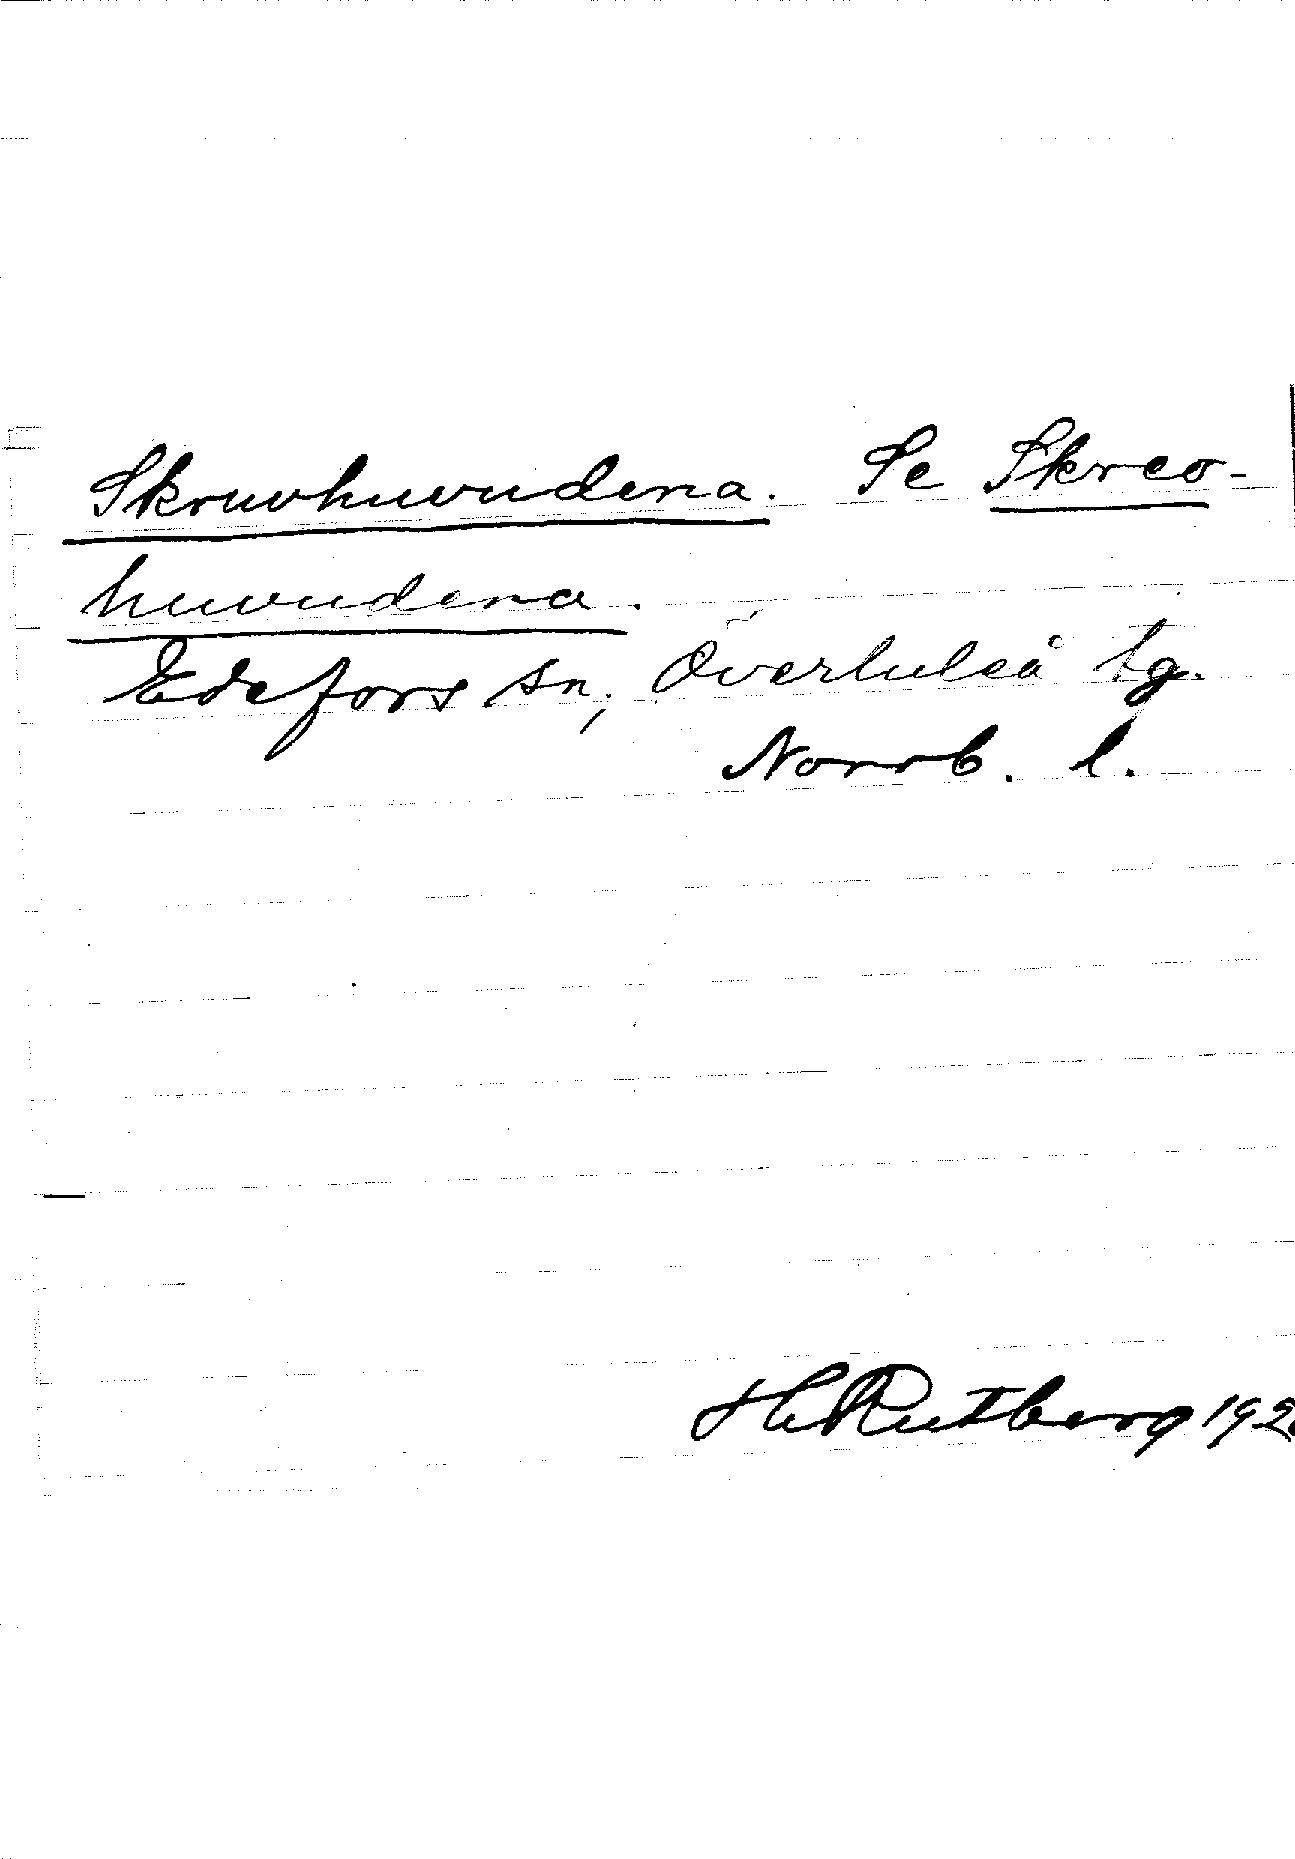 Skruvhuvudena. Se Skreo-
huvudena.
Edefors sn, Överluleå tg.
Norrb. l.
H Rutberg 192